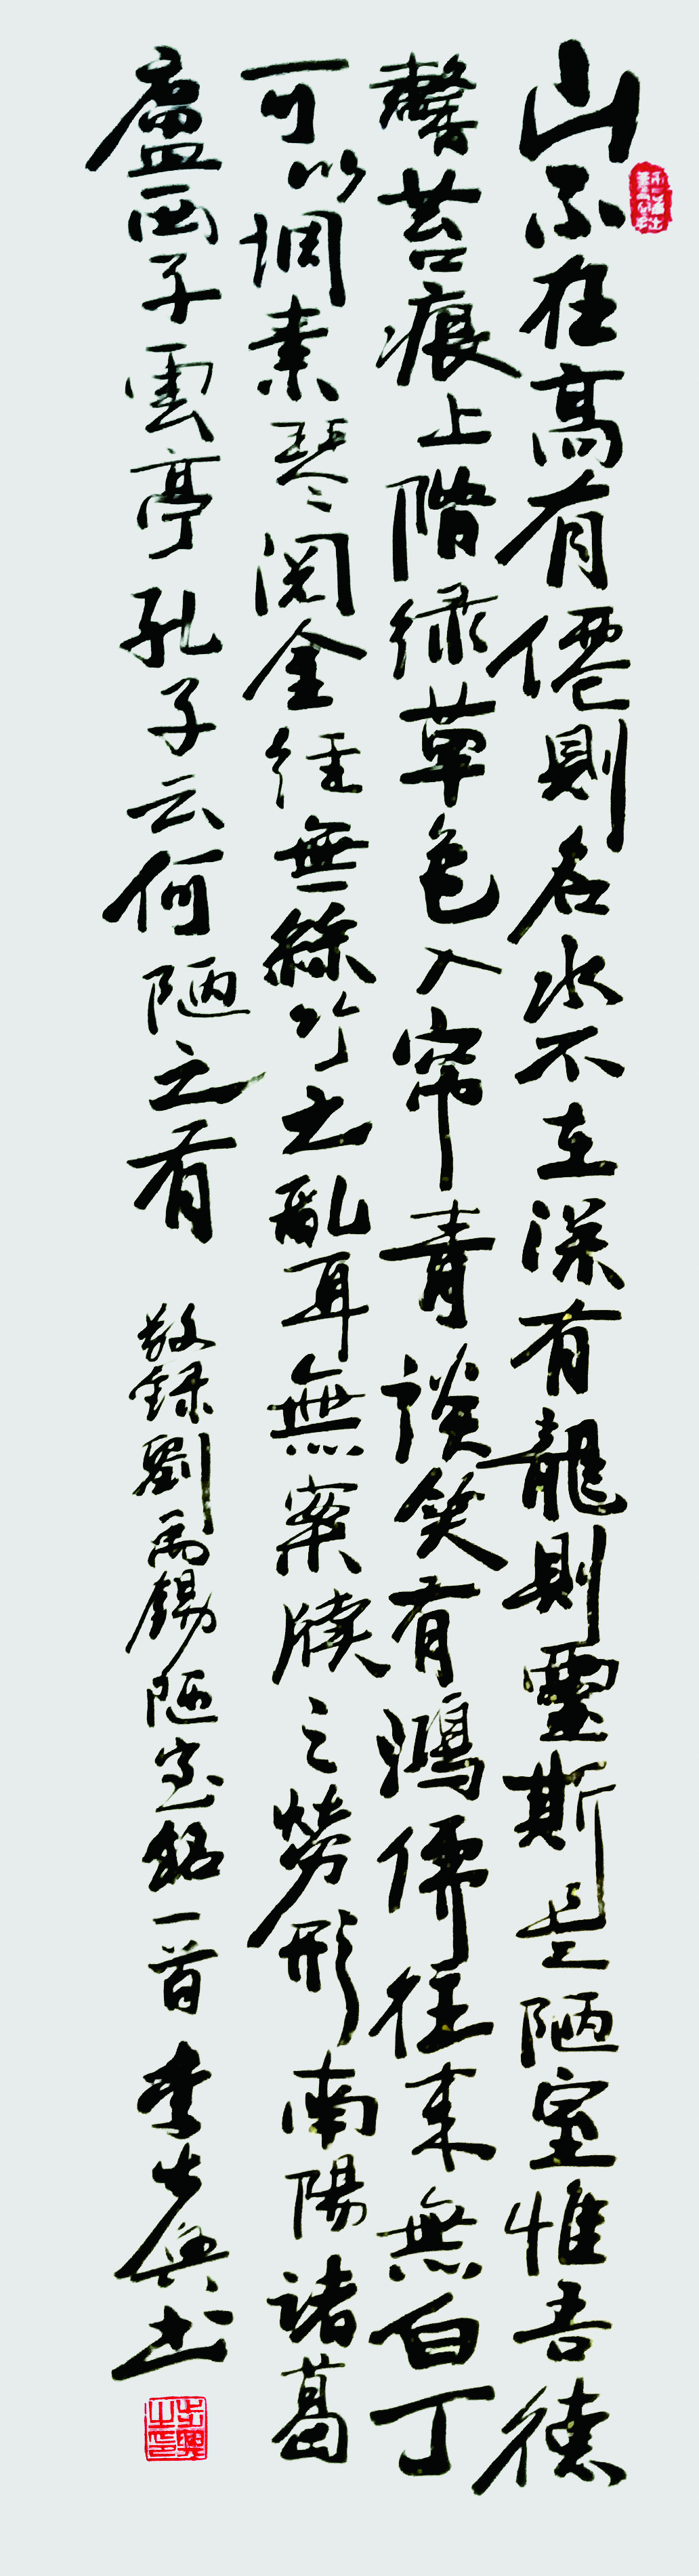 山不在高有僊則名水不在深有龍則靈斯是陋室惟吾德
馨苔痕上階綠草色入帘青談笑有鴻儒往來無白丁
可以調素琴閱金經無絲竹之亂耳無案牘之勞形南陽諸葛
廬西子雲亭孔子云何陋之有 敬録劉禹錫陋室銘一首 李步興书
步興之印